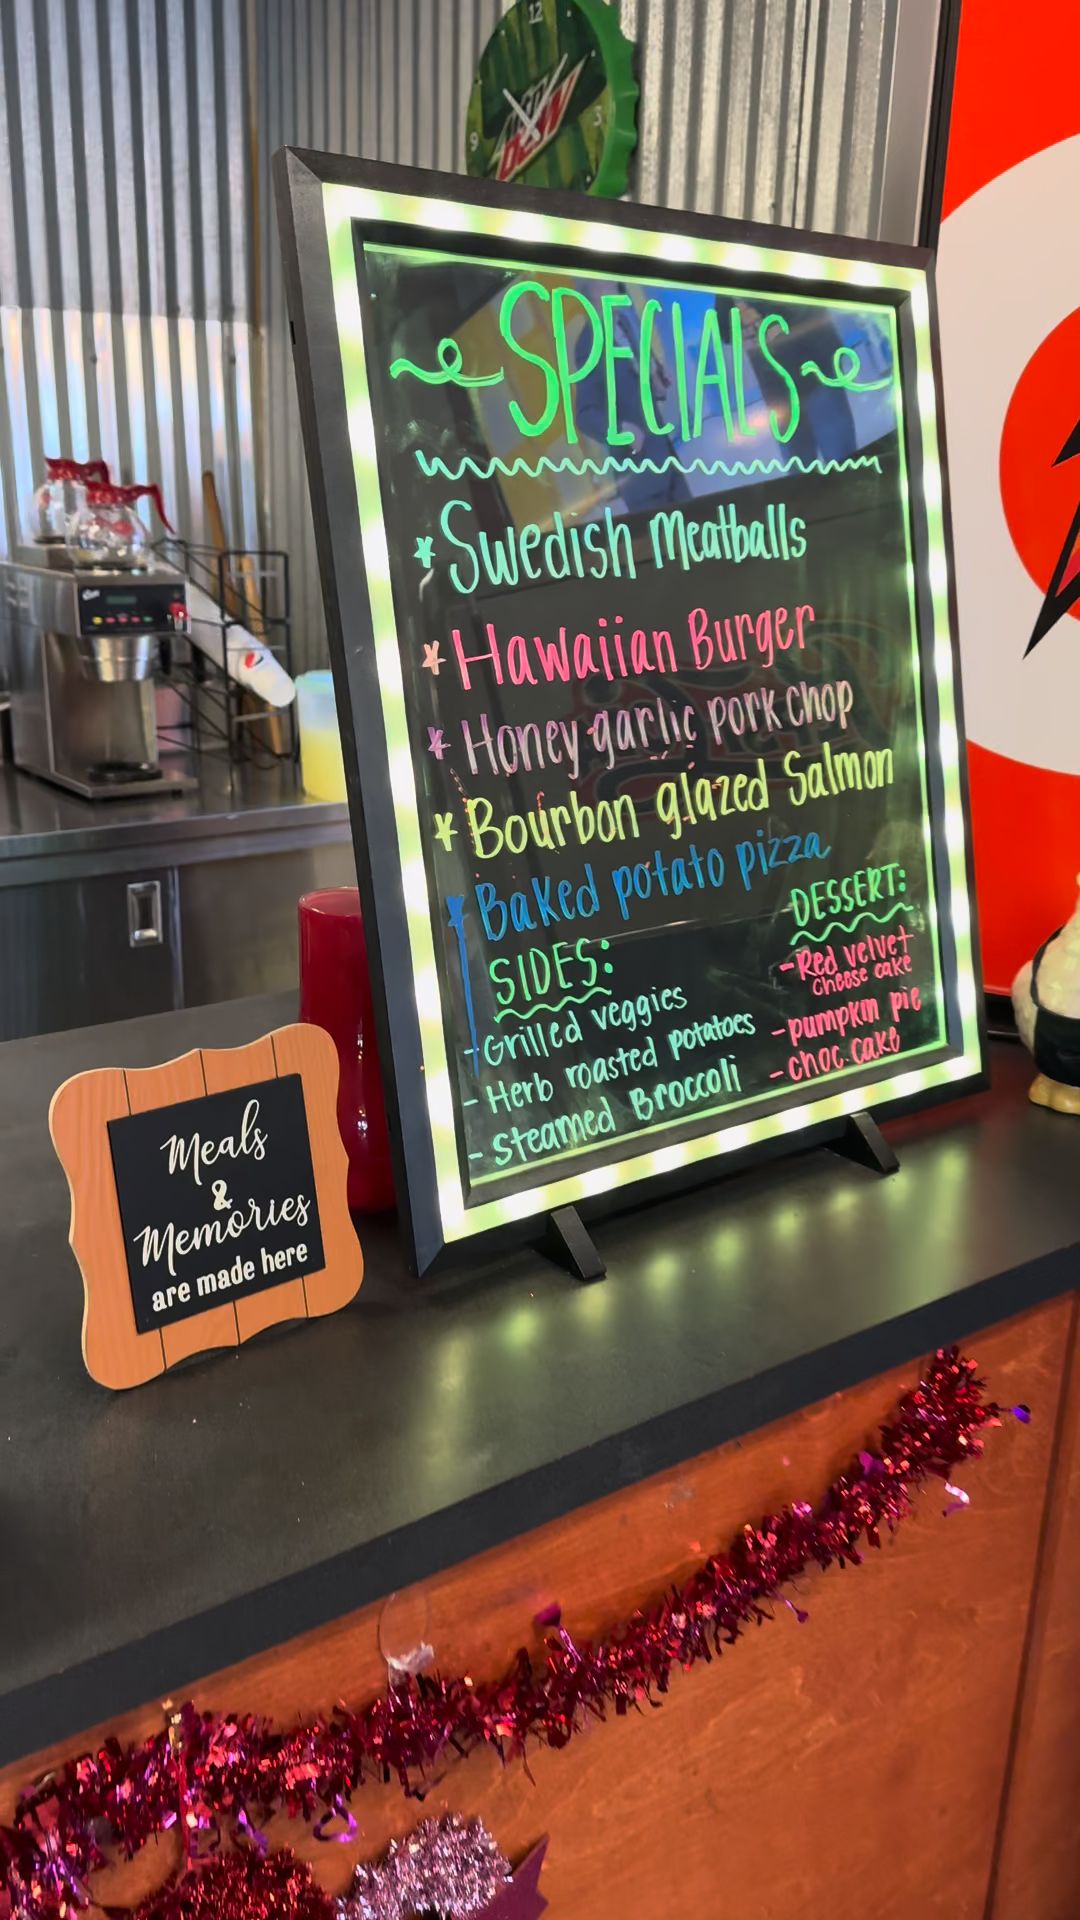 12
3
9
DEW
SPECIALS
* Swedish Meatballs
* Hawaiian Burger
* Honey garlic pork chop
* Bourbon glazed Salmon
* Baked potato pizza
SIDES:
- Grilled veggies
- Herb roasted potatoes
- Steamed Broccoli
DESSERT:
- Red velvet
cheese cake
- pumpkin pie
- choc. cake
Meals
&
Memories
are made here